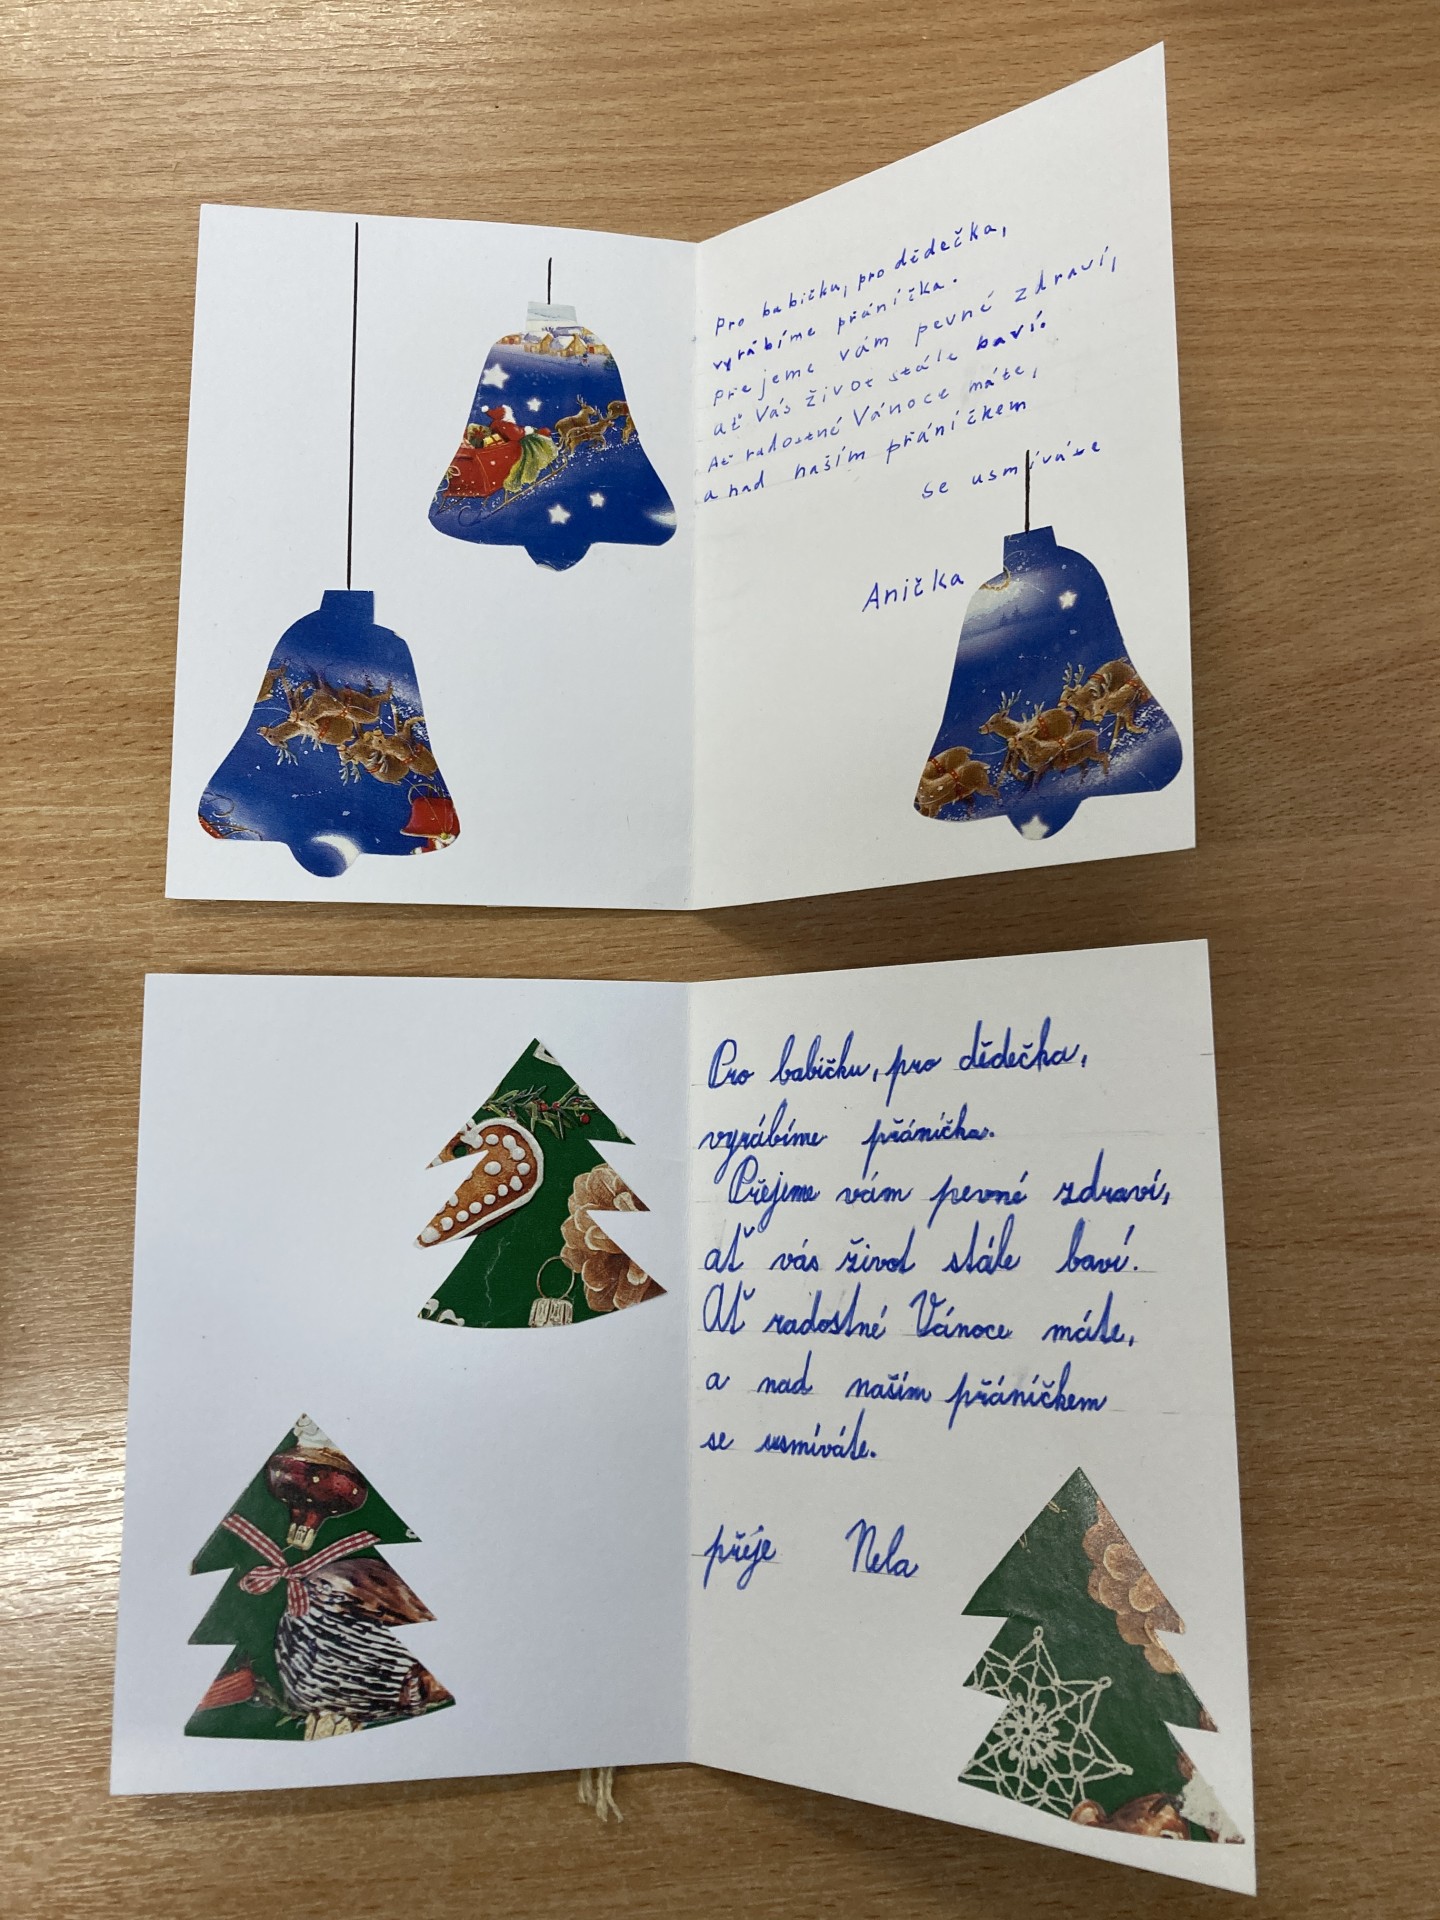 Pro babičku, pro dědečka,
vyrábíme přáníčka.
Přejeme vám pevné zdraví,
ať Vás život stále baví.
Ať radostné Vánoce máte,
a nad naším přáníčkem
se usmíváte
Anička
Pro babičku, pro dědečka,
vyrábíme přáníčka.
Přejeme vám pevné zdraví,
ať vás život stále baví.
Ať radostné Vánoce máte,
a nad naším přáníčkem
se usmíváte.
přeje Nela